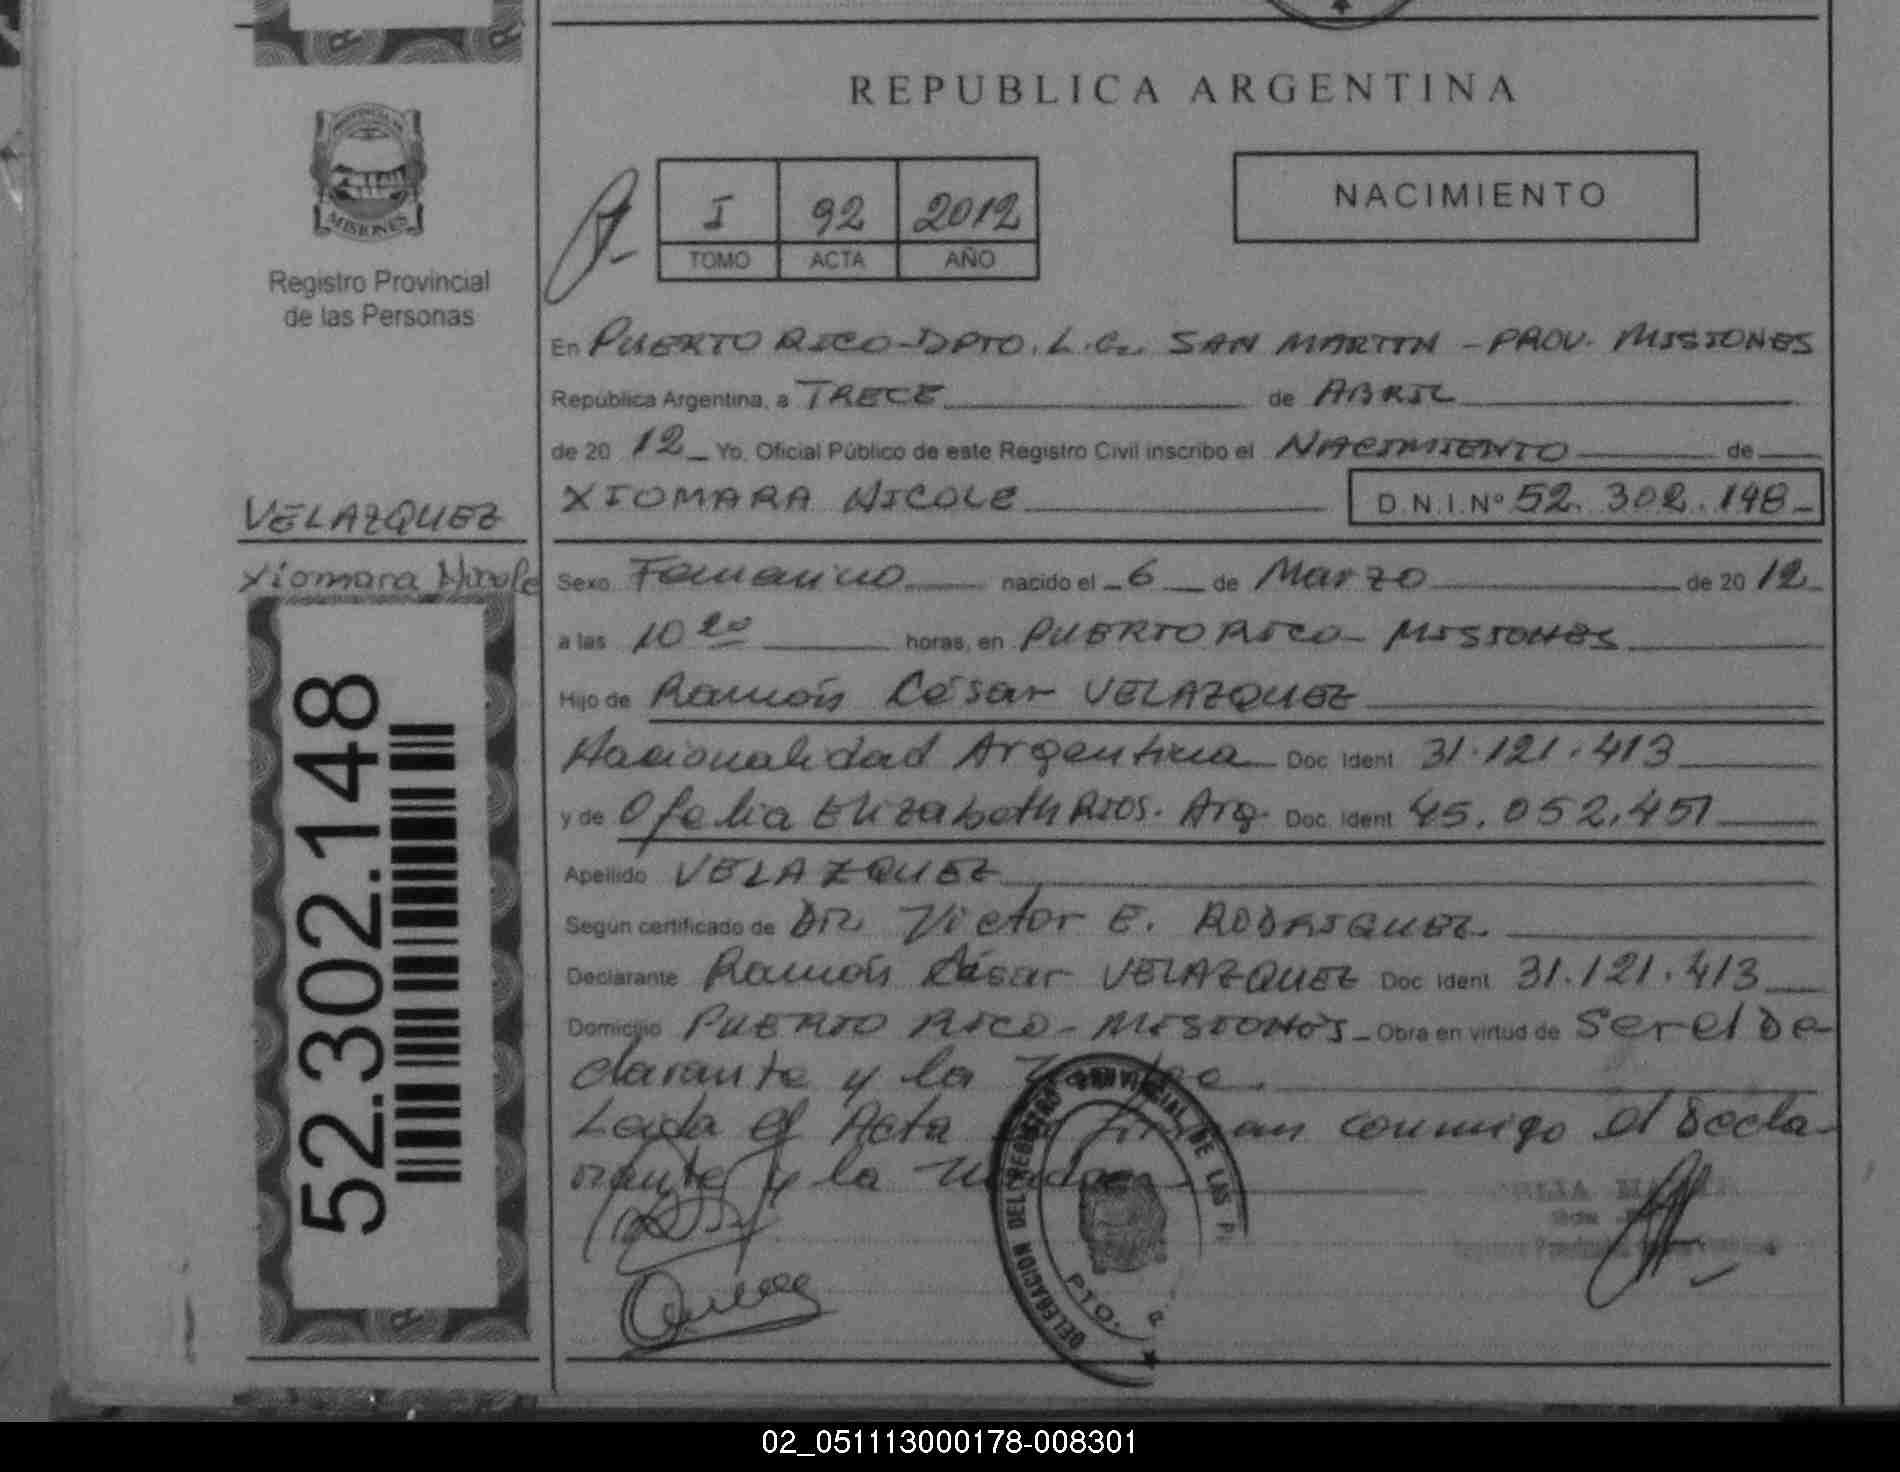 REPUBLICA ARGENTINA
MISIONES
Registro Provincial
de las Personas
I 92 2012
TOMO ACTA AÑO
NACIMIENTO
En PUERTO RICO-DPTO. L.G. SAN MARTIN - PROV. MISIONES
República Argentina, a TRECE de ABRIL
de 20 12 Yo, Oficial Público de este Registro Civil inscribo el NACIMIENTO de
XIOMARA NICOLE D.N.I.Nº 52.302.148
VELAZQUEZ
Xiomara Nicole
Sexo Femenino nacido el 6 de Marzo de 20 12
a las 10 20 horas, en PUERTO RICO - MISIONES
Hijo de Ramón César VELAZQUEZ
Nacionalidad Argentina Doc. Ident 31.121.413
y de Ofelia Elizabeth RIOS. Arg. Doc. Ident 45.052.451
Apellido VELAZQUEZ
Según certificado de Dr. Victor E. RODRIGUEZ.
Declarante Ramón César VELAZQUEZ Doc. Ident 31.121.413
Domicilio PUERTO RICO - MISIONES - Obra en virtud de Ser el De-
clarante y la
Leída el Acta conmigo el Decla-
rante y la
52.302.148
DELEGACION DEL REGISTRO PROVINCIAL DE LAS
PTO.
02_051113000178-008301